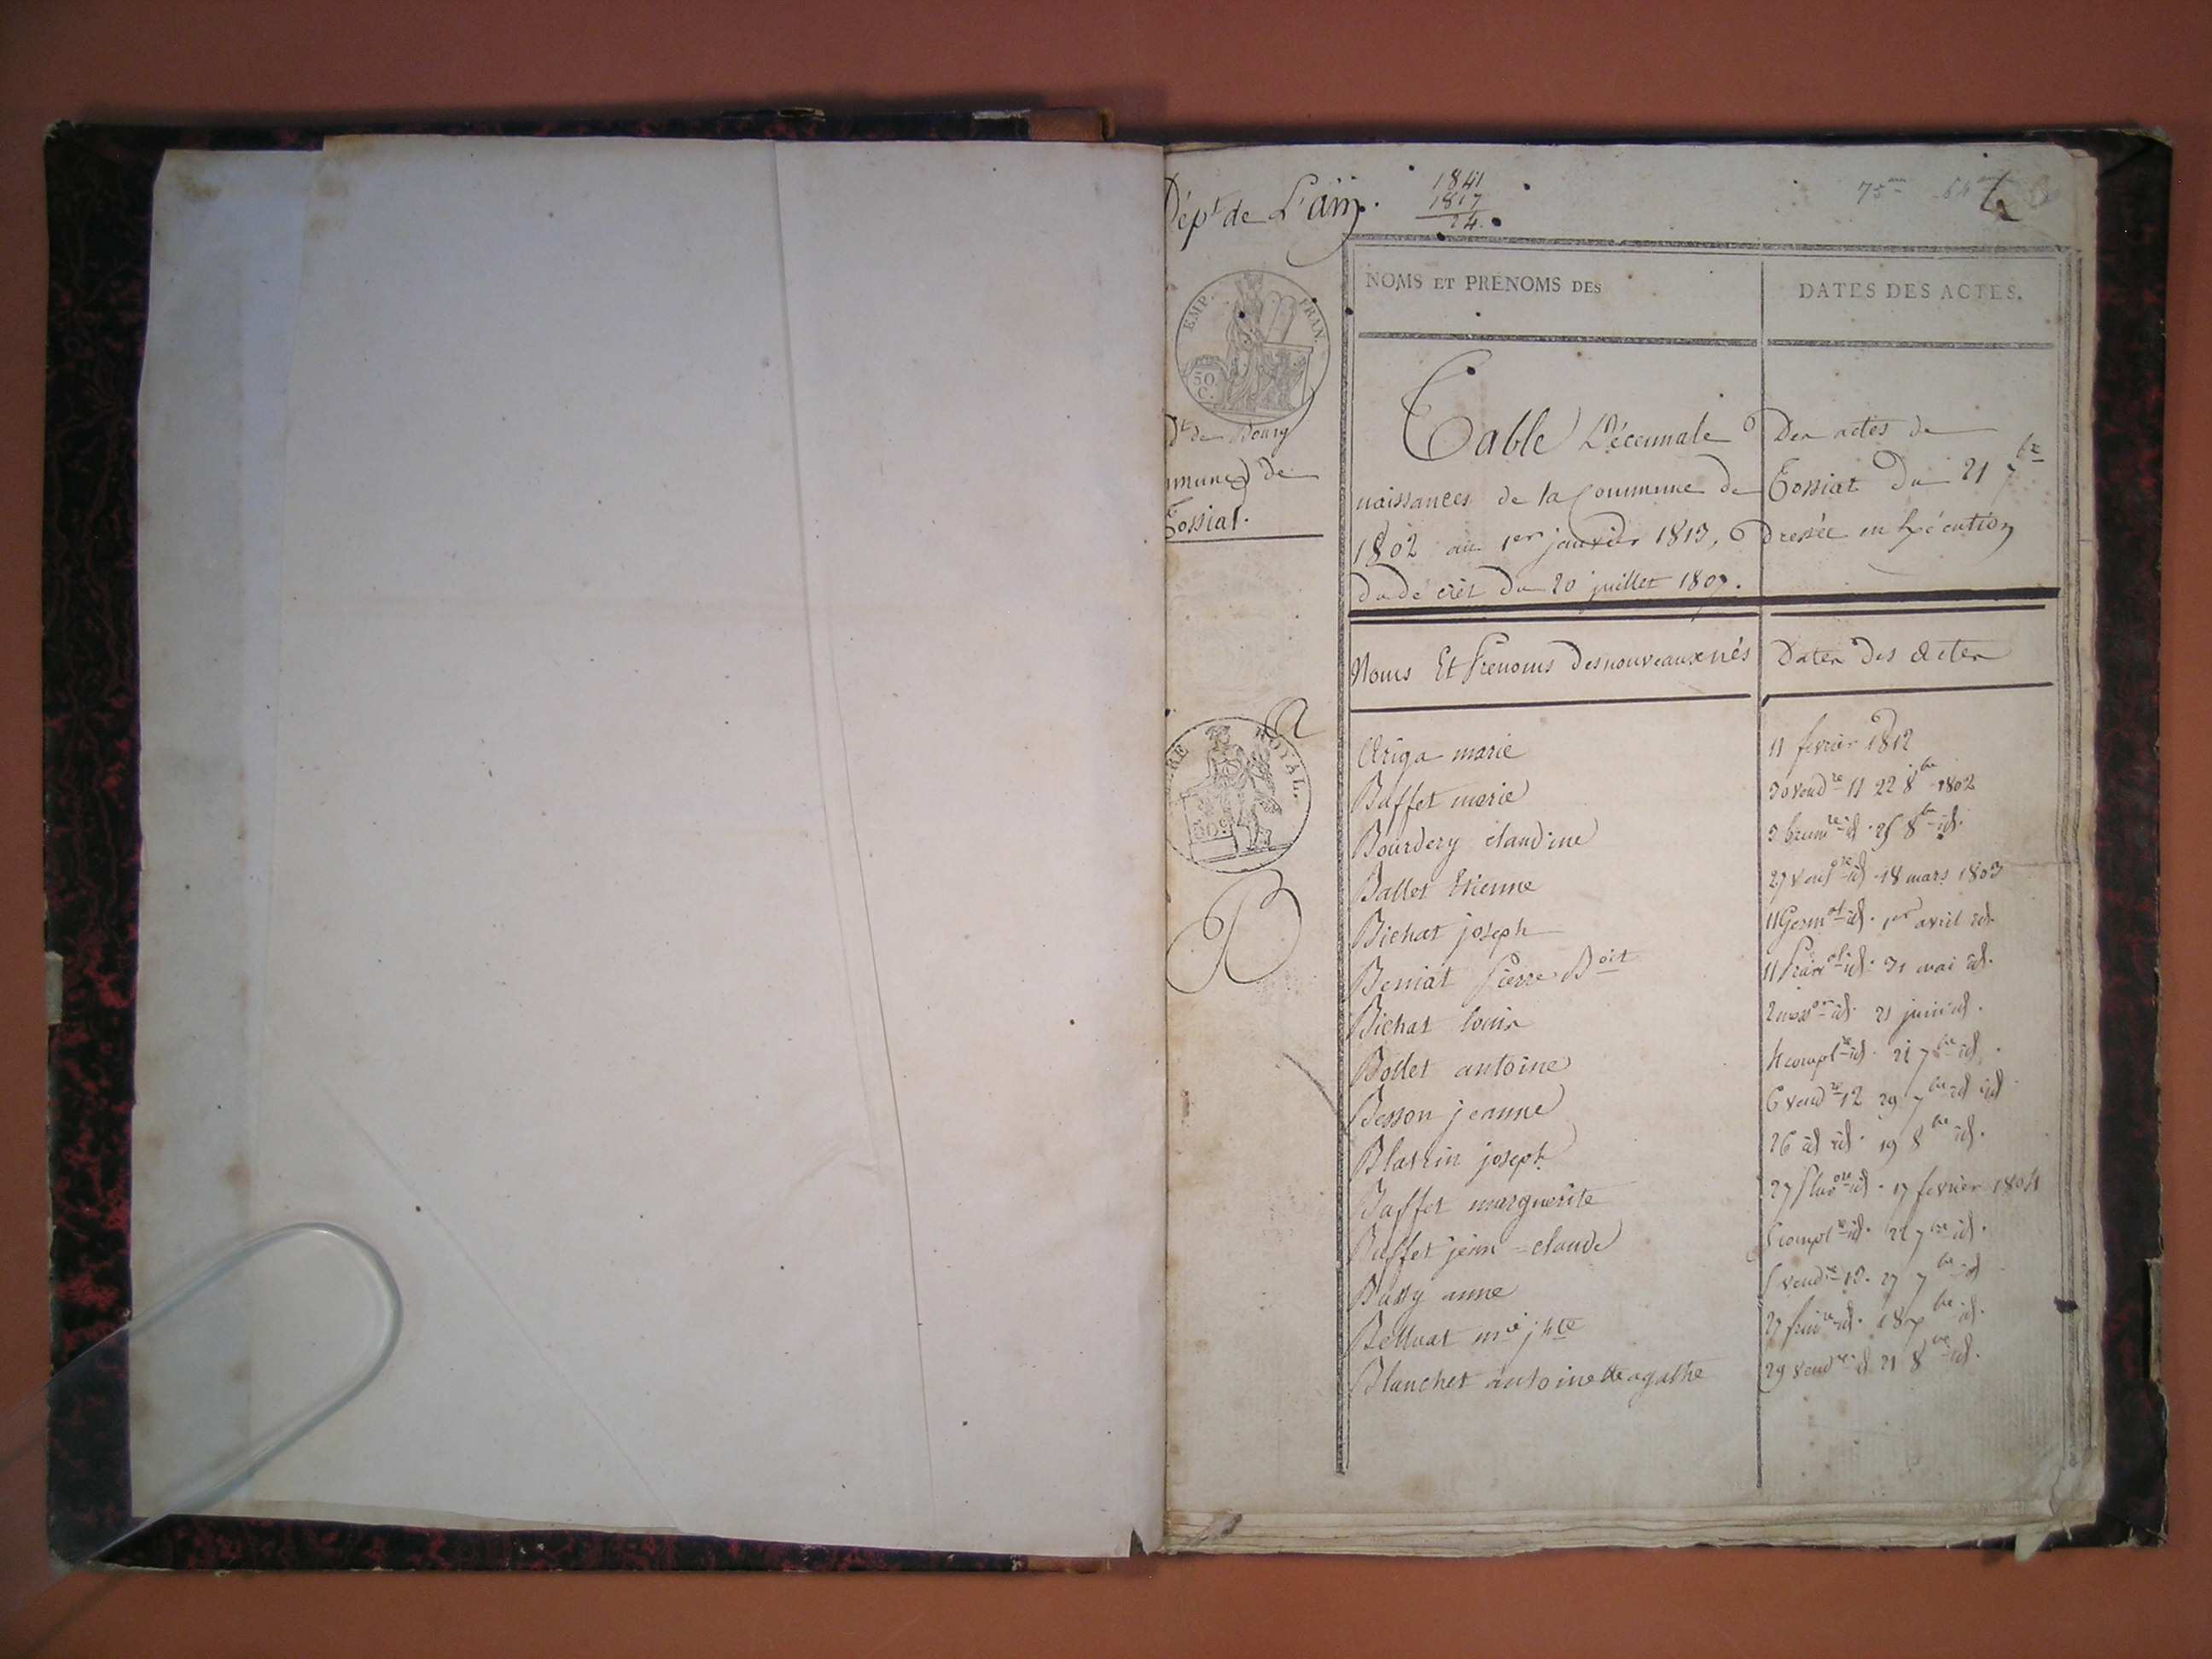 Dépt de L'ain.
1841
1817
24.
75
EMP. FRAN.
50 C.
Dt de Bourg
mune de
Tossiat.
NOMS ET PRÉNOMS DES
DATES DES ACTES.
Table Décennale Des actes de
naissances de la Commune de Tossiat Du 21 7bre
1802 au 1er janvier 1813, Dressée en Exécution
du décret du 20 juillet 1807.
Noms Et Prenoms des nouveaux nés
Dates Des Actes
ROYAL.
A
Ariga marie
11 fevrier 1812
B
Buffet marie
30 vendre 11 22 8bre 1802
Bourdery claudine
3 brumre id. 25 8bre id.
Ballet Etienne
27 ventose id. 18 mars 1803
Bichat joseph
11 Germal id. 1er avril id.
Beniat Pierre Boit
11 Prairal id. 31 mai id.
Bichat louis
2 messor id. 21 juin id.
Bollet antoine
4 complre id. 21 7bre id.
Besson jeanne
6 vendre 12 29 7bre id id
Blatrin joseph
26 id id. 19 8bre id.
Buffet marguerite
27 Pluvose id. 17 fevrier 1804
Buffet jean-claude
5 complre id. 22 7bre id.
Bussy anne
5 vendre 13. 27 7bre id
Belluat mie jhte
27 frimre id. 18 bre id.
Blanchet antoinette agathe
29 vendre id 21 8bre id.